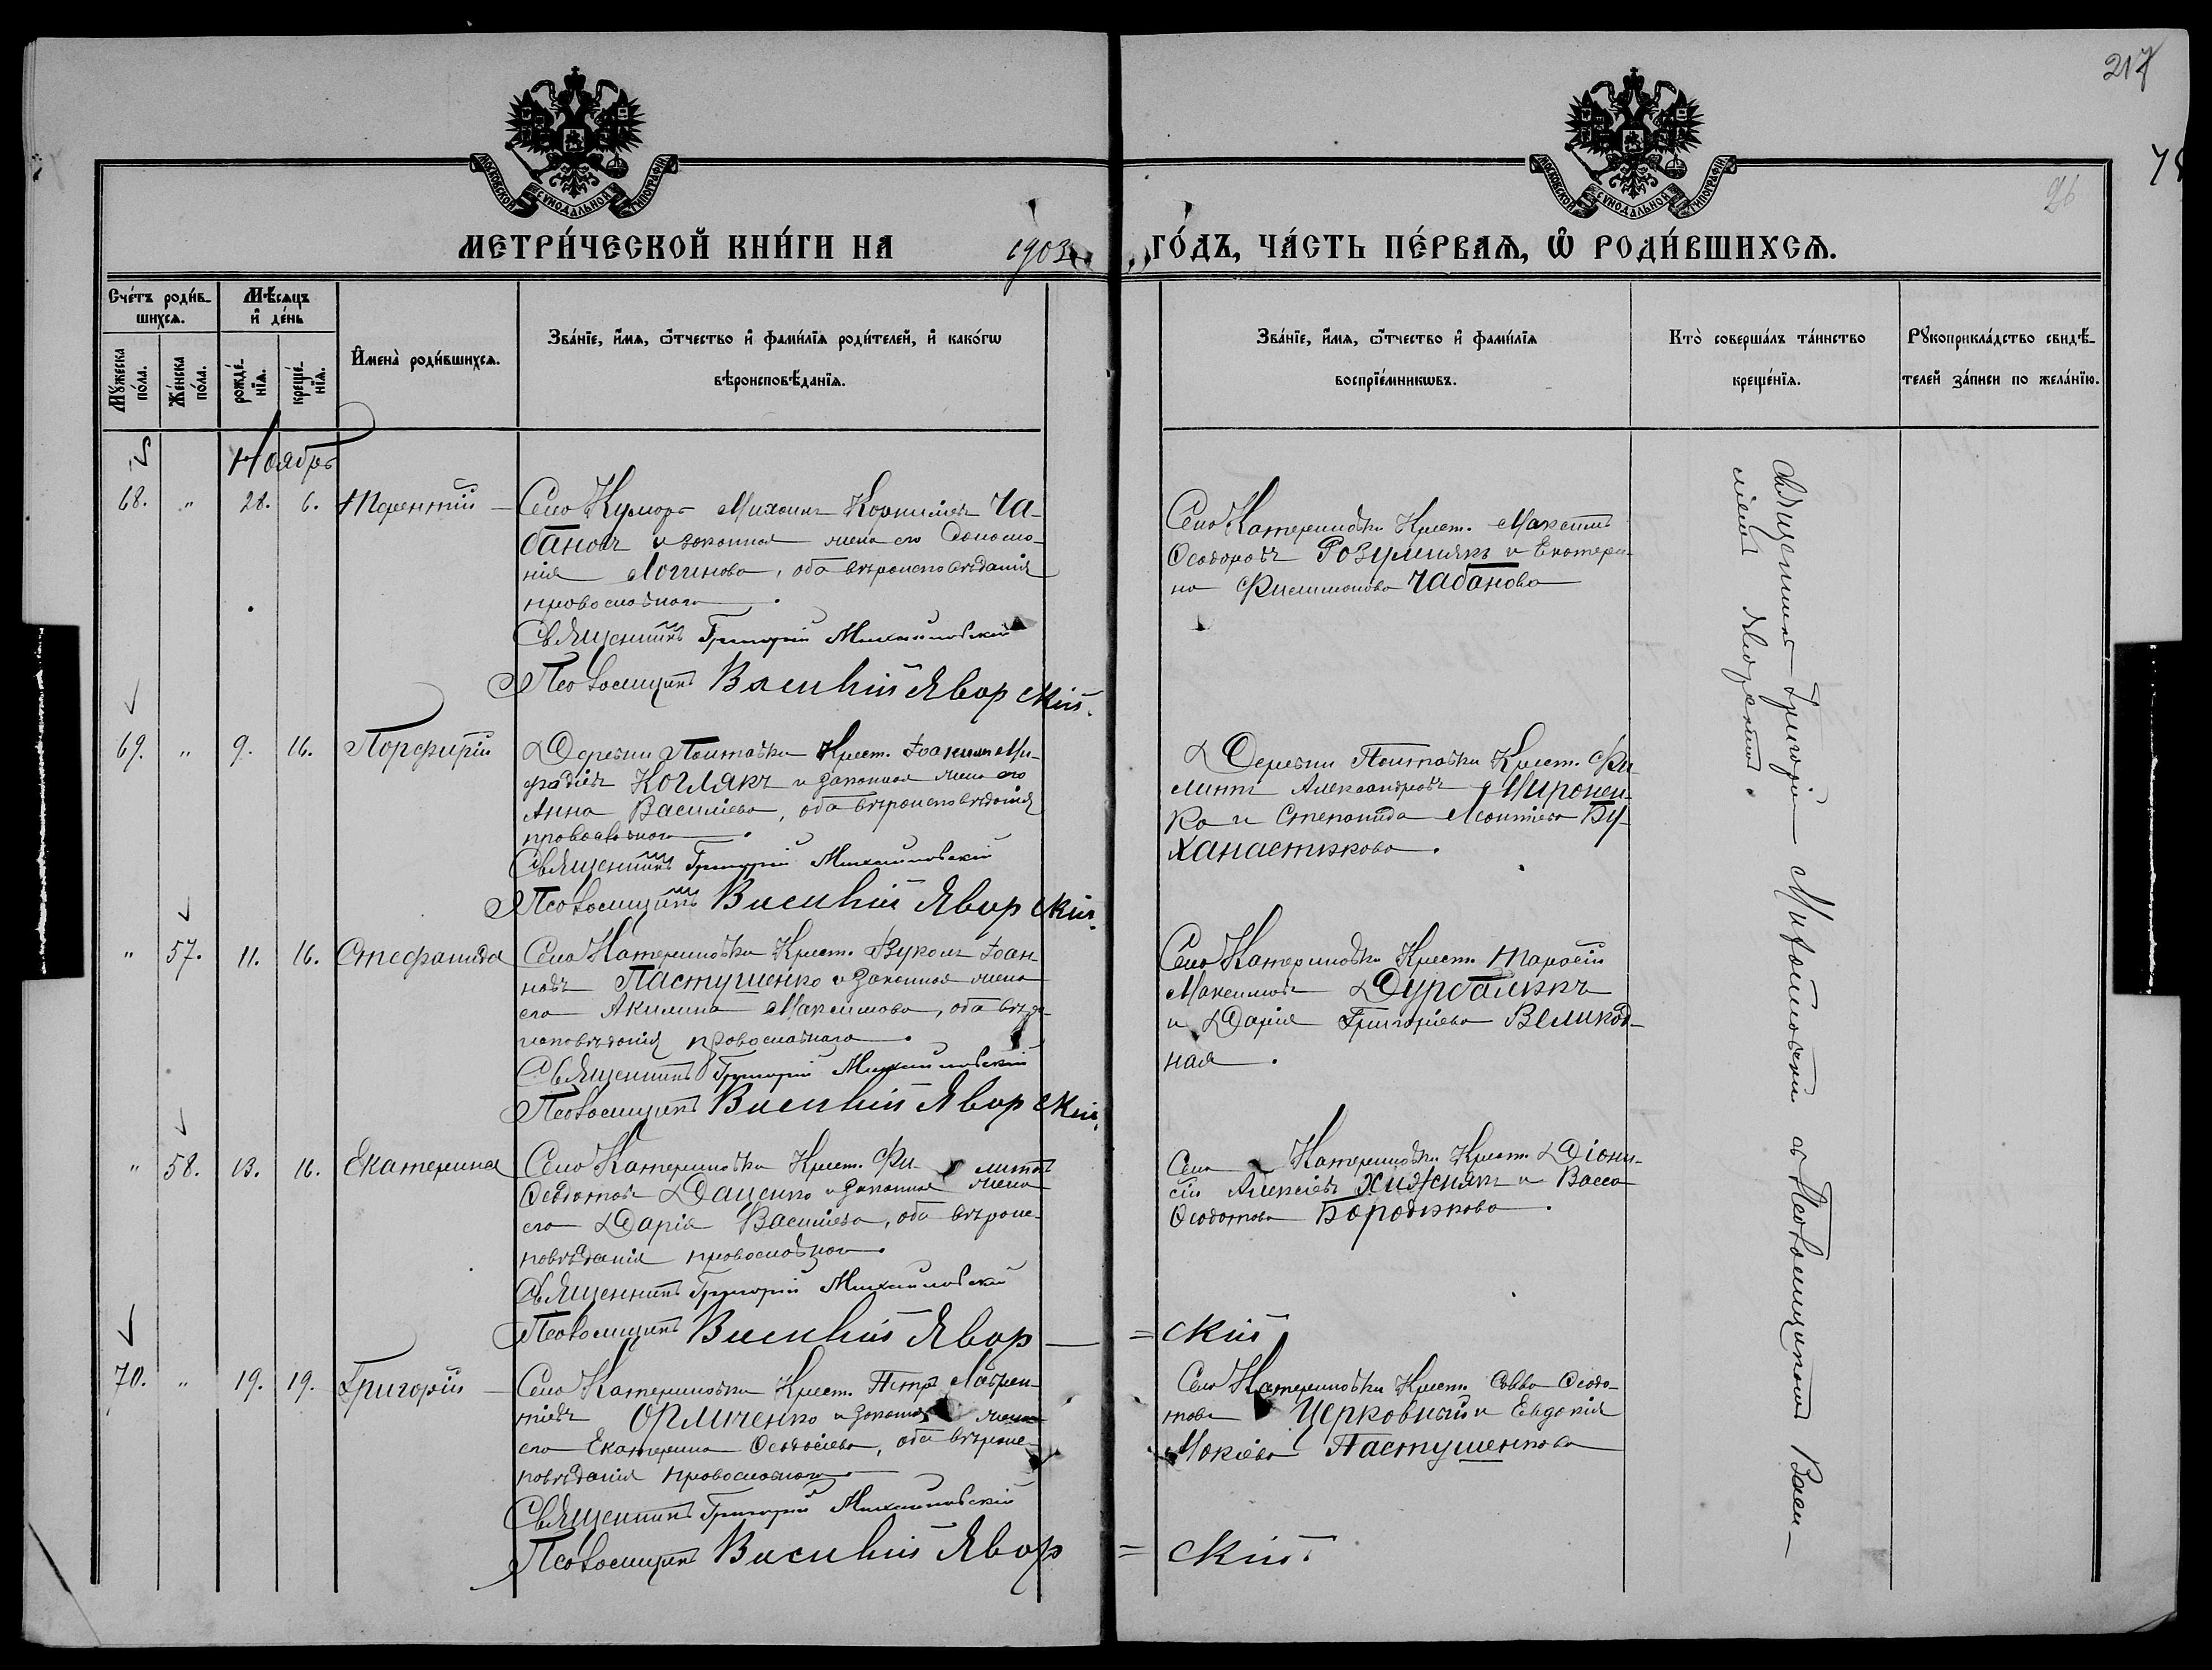 217
26
МОСКОВСКОЙ СѴНОДАЛЬНОЙ ТИПОГРАФІИ
МОСКОВСКОЙ СѴНОДАЛЬНОЙ ТИПОГРАФІИ
МЕТРИ́ЧЕСКОЙ КНИ́ГИ НА 1903 ГО́ДЪ, ЧА́СТЬ ПЕ́РВАѦ, Ѽ РОДИ́ВШИХСѦ.
Сче́тъ роди́в-
шихсѧ.
Мѣ́сѧцъ
и҆ де́нь
Мꙋ́жеска
по́ла.
Же́нска
по́ла.
рожде́-
нїѧ.
креще́-
нїѧ.
И҆мена̀ роди́вшихсѧ.
Зва́нїе, и҆́мѧ, ѻ҆́тчество и҆ фами́лїѧ роди́телей, и҆ како́гѡ
вѣроисповѣ́данїѧ.
Зва́нїе, и҆́мѧ, ѻ҆́тчество и҆ фами́лїѧ
воспрїе́мникѡвъ.
Кто̀ соверша́лъ та́инство
креще́нїѧ.
Рꙋкоприкла́дство свидѣ́-
телей за́писи по жела́нїю.
Ноябрь
68. " 28. 6. Терентій
Село Михаилъ Корниліевъ Ча-
бановъ и законная жена его Домо-
нія Логинова, оба вѣроисповѣданія
православнаго.
Священникъ Григорій Михайловскій
Псаломщикъ Василій Яворскій.
Село Катериновки Крест. Максимъ
Ѳеодоровъ Розумнякъ и Екатери-
на Филимонова Чабанова
69. " 9. 16. Порфирій
Деревни Полтавки Крест. Іоакимъ Ми-
Коглякъ и законная жена его
Анна Василіева, оба вѣроисповѣданія
православнаго.
Священникъ Григорій Михайловскій
Псаломщикъ Василій Яворскій.
Деревни Полтавки Крест. Фи-
липпъ Александровъ Миронен-
ко и Степанида Леонтіева Бу-
ханастикова.
" 57. 11. 16. Стефанида
Села Катериновки Крест. Вуколъ Іоан-
новъ Пастушенко и законная жена
его Акилина Максимова, оба вѣро-
исповѣданія православнаго.
Священникъ Григорій Михайловскій
Псаломщикъ Василій Яворскій.
Села Катериновки Крест. Тарасій
Максимовъ Дурбалюкъ
и Дарія Григоріева Великод-
ная.
" 58. 13. 16. Екатерина
Село Катериновки Крест. Филиппъ
Ѳеодотовъ Даценко и законная жена
его Дарія Василіева, оба вѣроис-
повѣданія православнаго.
Священникъ Григорій Михайловскій
Псаломщикъ Василій Явор-
= скій
Села Катериновки Крест. Діони-
сій Алексіевъ Хижнякъ и Васса
Ѳеодотова Бородикова.
70. " 19. 19. Григорій
Село Катериновки Крест. Петръ Лаврен-
тіевъ Орличенко и законная жена
его Екатерина Ѳеодосіева, оба вѣроис-
повѣданія православнаго.
Священникъ Григорій Михайловскій
Псаломщикъ Василій Явор
= скій.
Село Катериновки Крест. Савва Ѳеодо-
товъ Церковный и Евдокія
Мокіева Пастушенкова
Священникъ Григорій Михайловскій съ Псаломщикомъ Васи-
ліемъ Яворскимъ.